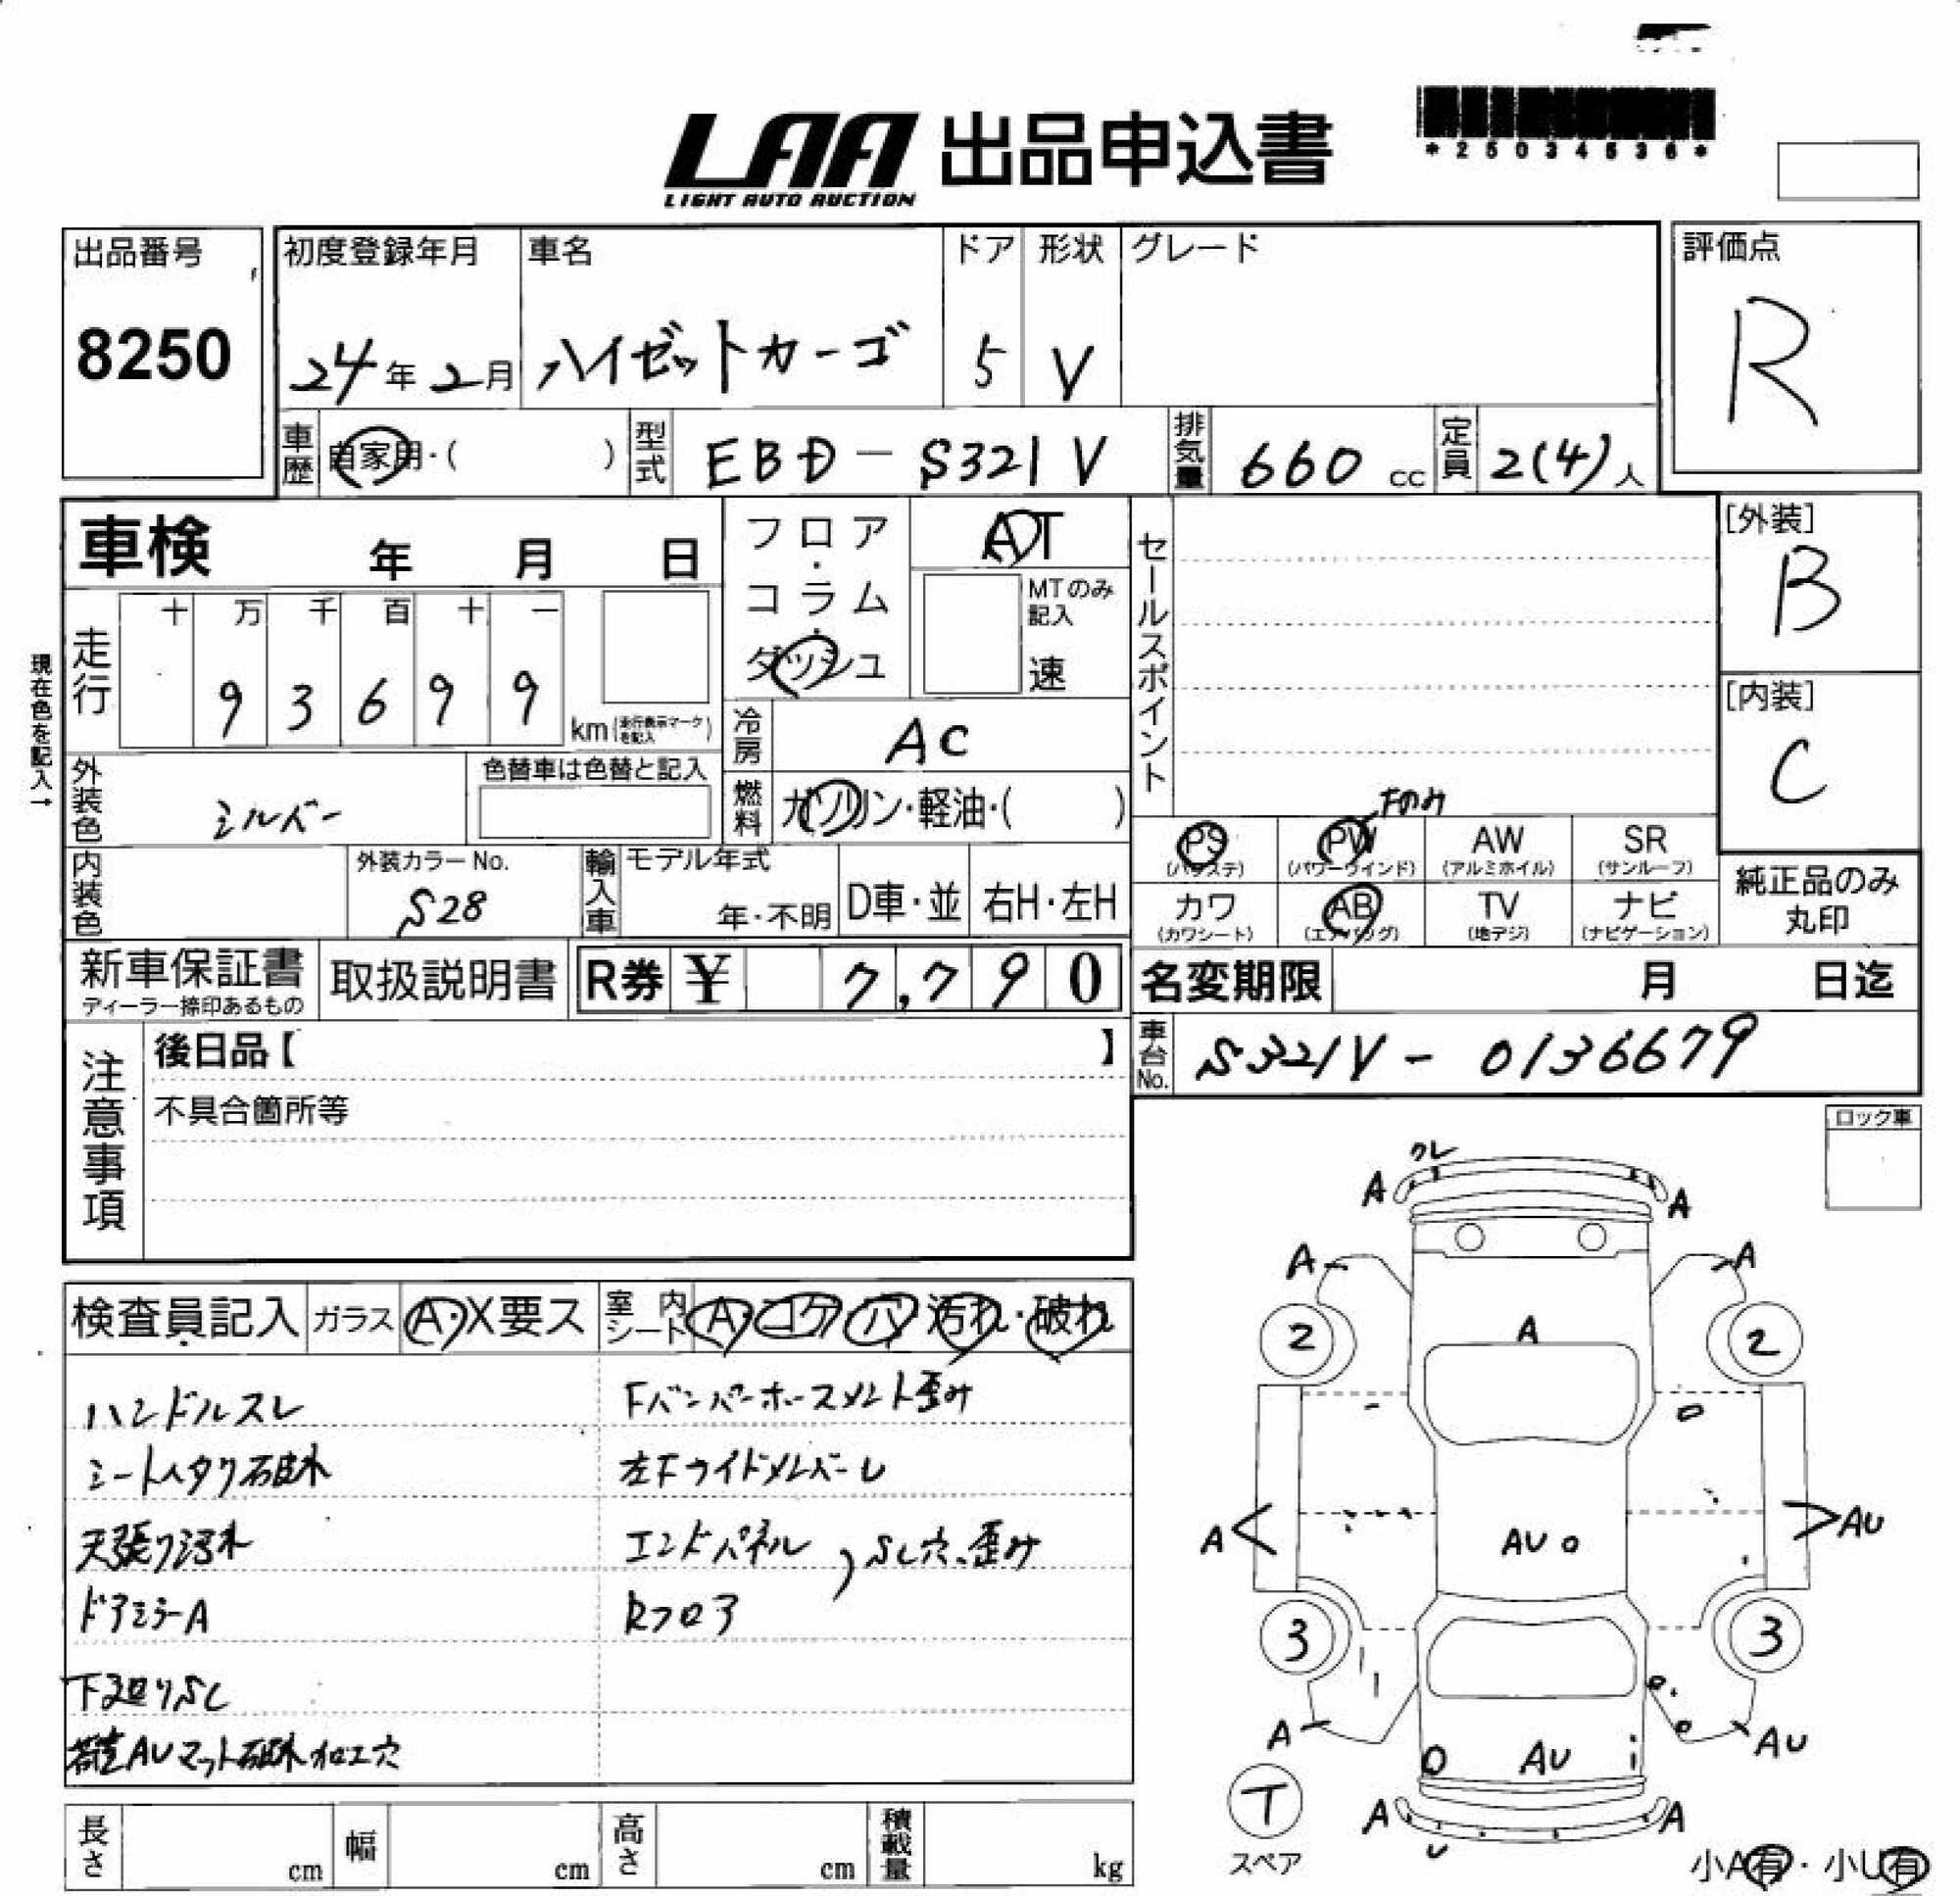 *25034536*
LAA 出品申込書
LIGHT AUTO AUCTION
出品番号
8250
初度登録年月
24年2月
車名
ハイゼットカーゴ
ドア
5
形状
V
グレード
評価点
R
車歴 自家用・( )
型式 EBD-S321V
排気量 660 cc
定員 2(4)人
車検 年 月 日
フロア・コラム・ダッシュ
AT
MTのみ記入
速
セールスポイント
[外装]
B
[内装]
C
現在色を記入→
走行
十 万 千 百 十 一
9 3 6 9 9
km(走行表示マークを記入)
冷房 AC
外装色 シルバー
色替車は色替と記入
燃料 ガソリン・軽油・( )
Fのみ
PS (パワステ)
PW (パワーウインド)
AW (アルミホイル)
SR (サンルーフ)
カワ (カワシート)
AB (エアバッグ)
TV (地デジ)
ナビ (ナビゲーション)
純正品のみ
丸印
内装色
外装カラーNo.
S28
輸入車
モデル年式
年・不明
D車・並
右H・左H
新車保証書
ディーラー捺印あるもの
取扱説明書
R券 ¥ 7,790
名変期限 月 日迄
車台No. S321V-0136679
注意事項
後日品【 】
不具合箇所等
ロック車
検査員記入
ガラス A・X要ス
室内シート A・コゲ・穴・汚れ・破れ
ハンドルスレ
シートヘタリ破れ
天張り汚れ
ドアミラーA
下廻りSC
荷室AUマット破れ加工穴
Fバンパーホースメント歪み
左FサイドメンバーU
エンドパネル
Rフロア
SC穴、歪み
ワレ
A
A
A
A
2
2
A
A
AU
AU
3
3
A
AU
AU
A
A
U
T
スペア
小A有・小U有
長さ cm
幅 cm
高さ cm
積載量 kg